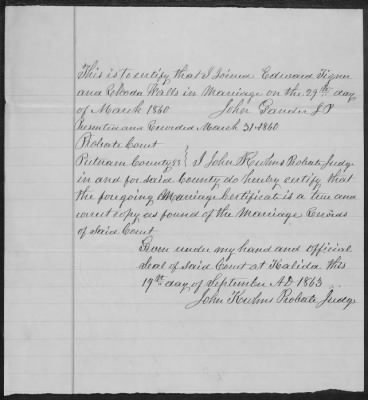 This is to certify that I Joined Edward Tigner
and Rhoda Walls in Marriage on the 29th day
of March 1860 John JP
Presented and Recorded March 31st 1860
Probate Court
Putnam County SS } I John Kuhns Probate Judge
in and for said County do hereby certify that
the foregoing Marriage Certificate is a true and
correct copy as found of the Marriage Records
of Said Court
Given under my hand and official
Seal of Said Court at Kalida this
19th day of September AD 1863
John Kuhns Probate Judge